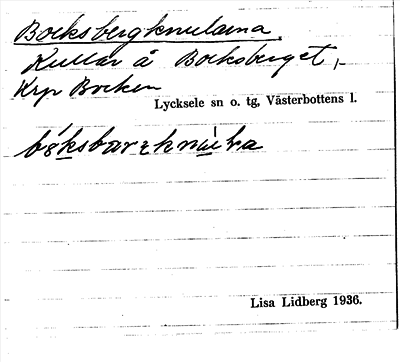 Bocksbergknularna.
Kullar å Bocksberget,
krp Bocken
Lycksele sn o. tg, Västerbottens l.
Lisa Lidberg 1936.